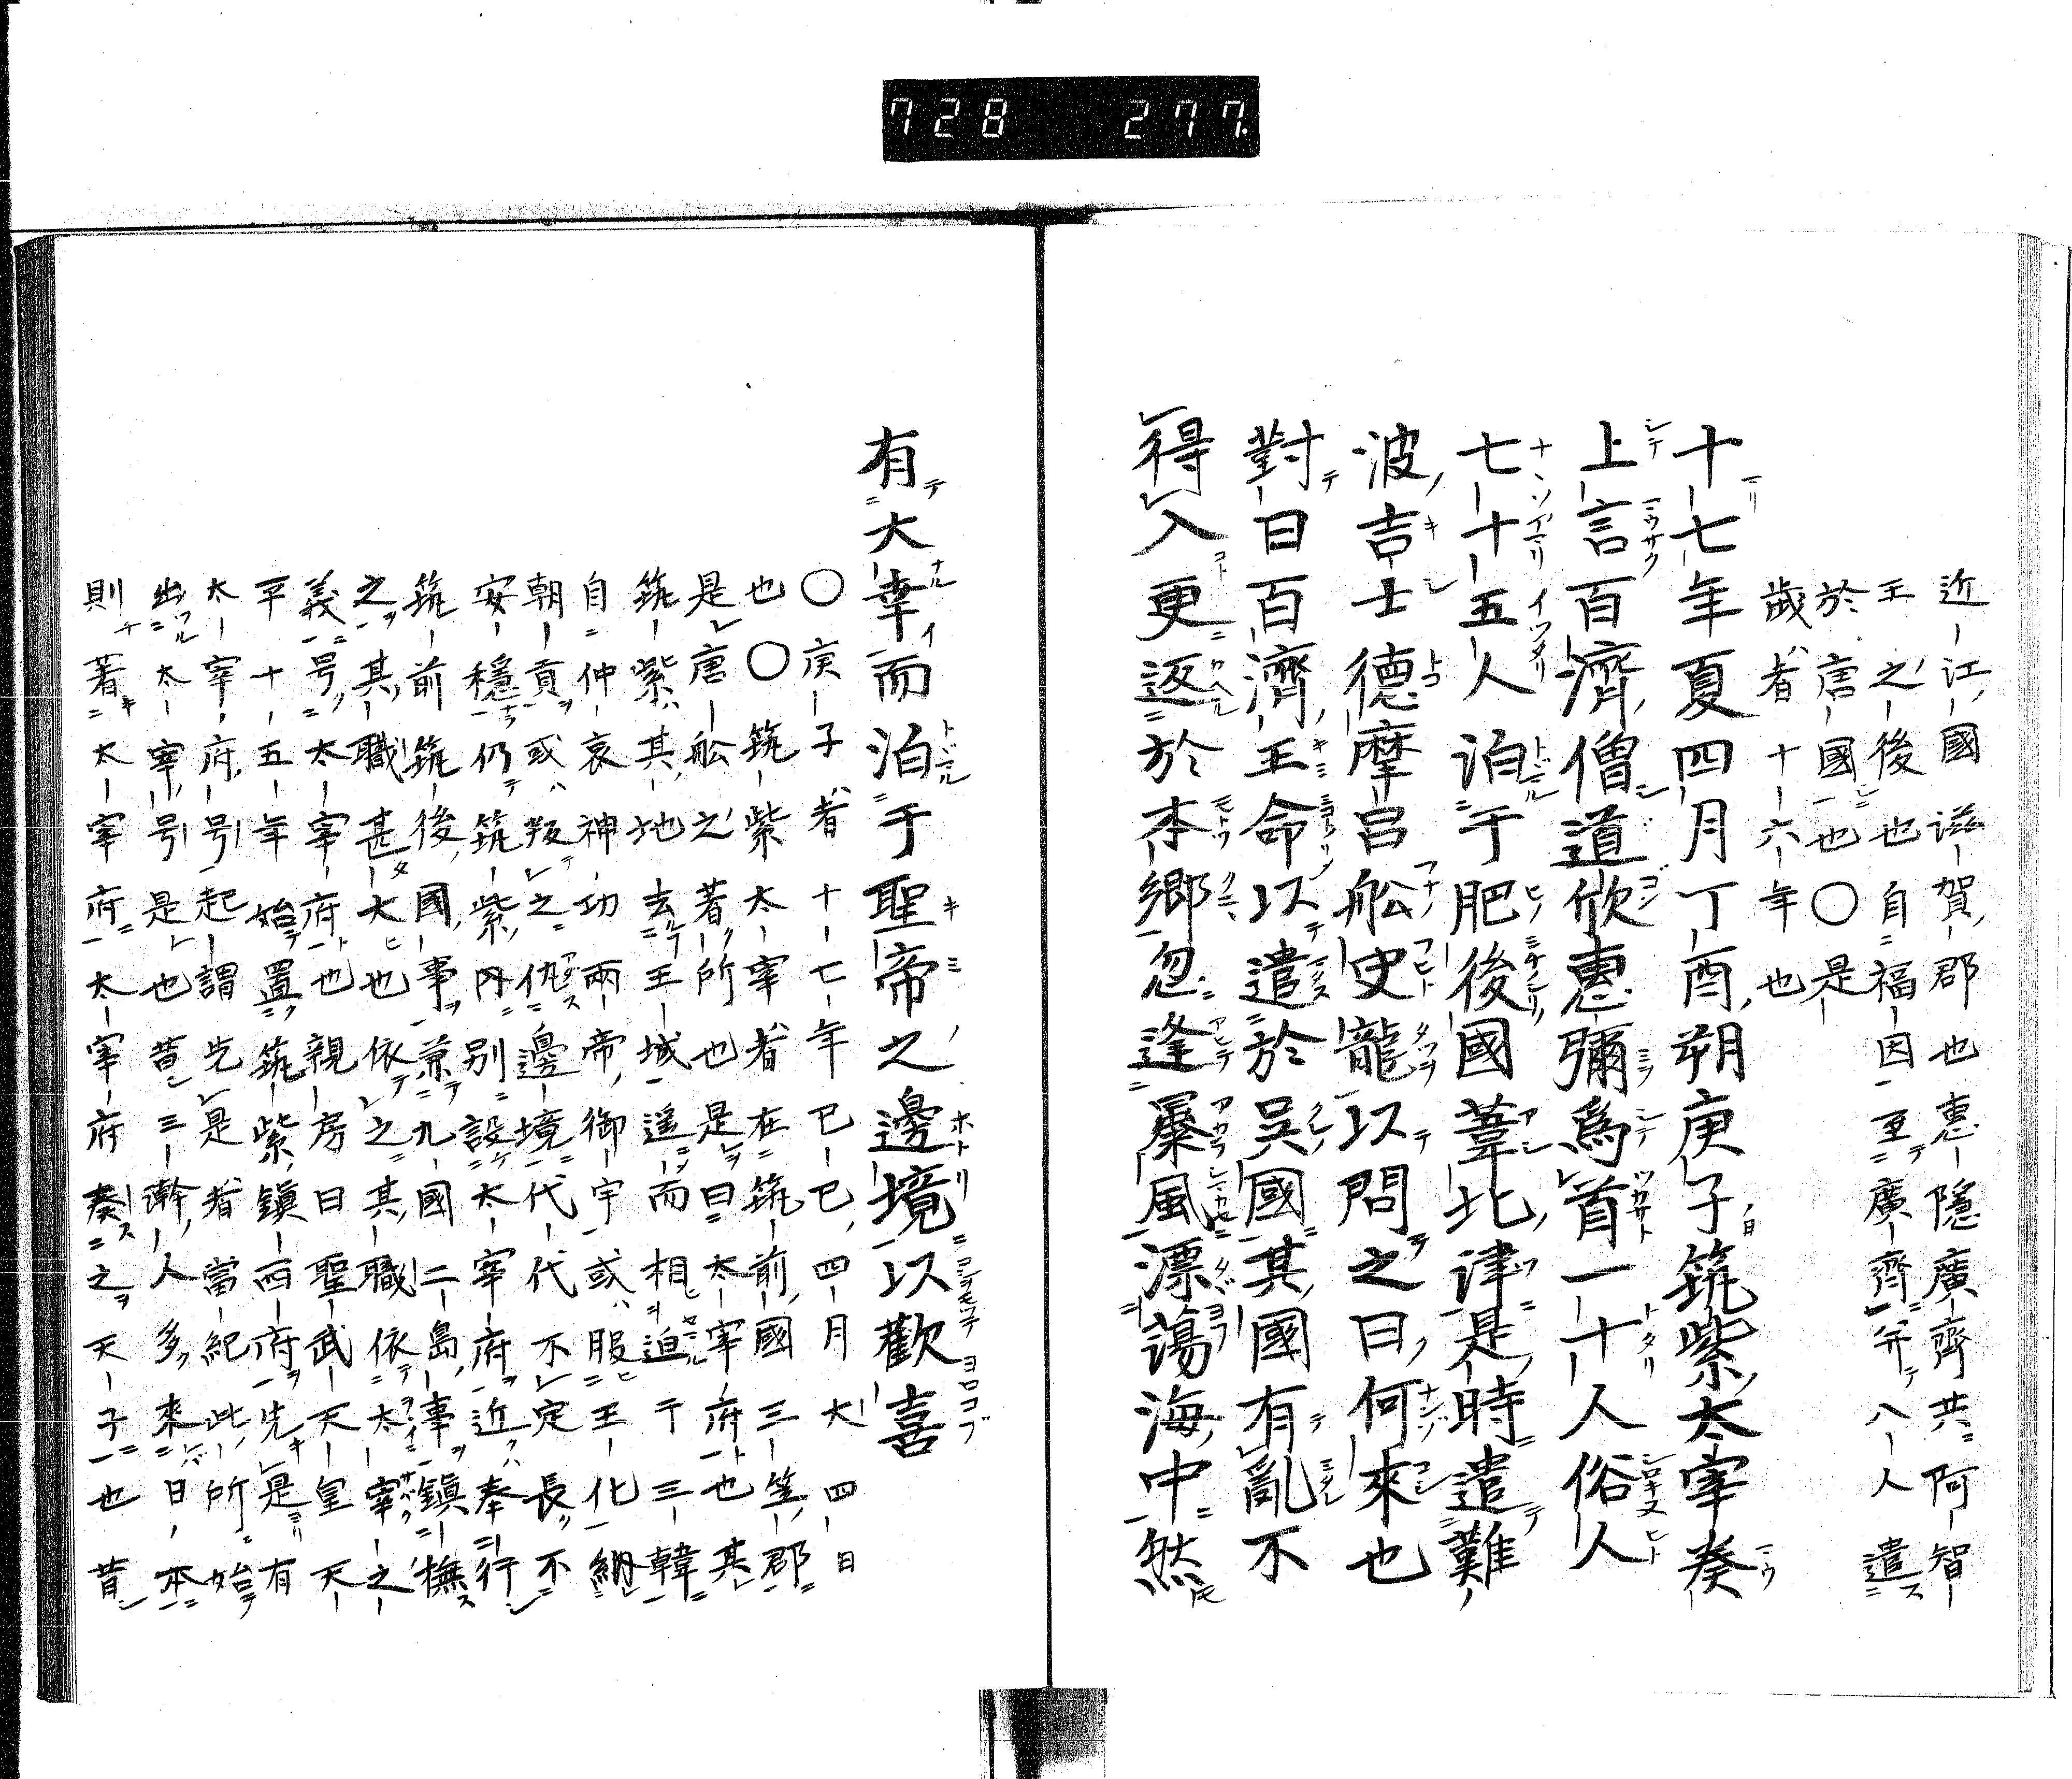 728 277.
近江國滋賀郡也惠隱廣齊共阿智
王之後也自福因至廣齊并八人遣
於唐國也〇是
歲者十六年也
十七年夏四月丁酉朔庚子筑紫太宰奏
上言百濟僧道欣惠彌爲首一十人俗人
七十五人泊于肥後國葦北津是時遣難
波吉士德摩呂舩史龍以問之曰何來也
對曰百濟王命以遣於吳國其國有亂不
得入更返於本鄉忽逢暴風漂蕩海中然
有大幸而泊于聖帝之邊境以歡喜
〇庚子者十七年已巳四月大四日
也〇筑紫太宰者在筑前國三笠郡
是唐舩之著所也是曰太宰府也其
筑紫其地去王城遥而相迫于三韓
自仲哀神功兩帝御宇或服王化納
朝貢或叛之仇邊境代代不定長不
安穩仍筑紫内別設太宰府近奉行
筑前筑後國事兼九國二島事鎮撫
之其職甚大也依之其職依太宰之
義号太宰府也親房曰聖武天皇天
平十五年始置筑紫鎮西府先是有
太宰府号起謂先是者當紀此所始
出太宰号是也昔三韓人多來日本
則著太宰府太宰府奏之天子也昔